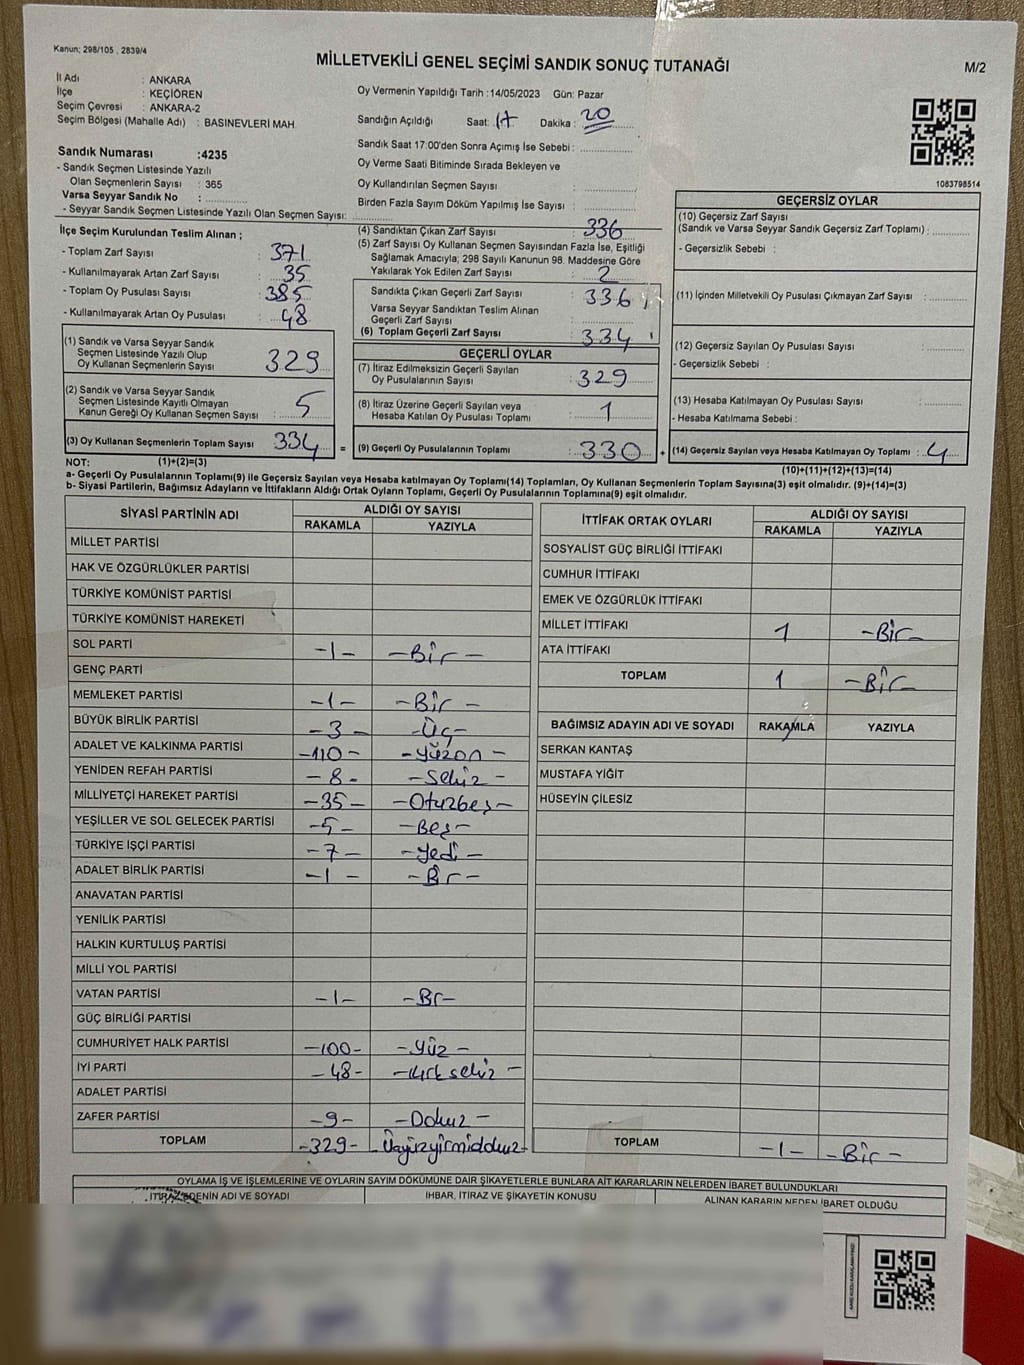 Kanun; 298/105 , 2839/4
MİLLETVEKİLİ GENEL SEÇİMİ SANDIK SONUÇ TUTANAĞI
M/2
İl Adı : ANKARA
İlçe : KEÇİÖREN
Seçim Çevresi : ANKARA-2
Seçim Bölgesi (Mahalle Adı) : BASINEVLERİ MAH.
Oy Vermenin Yapıldığı Tarih :14/05/2023 Gün: Pazar
Sandığın Açıldığı Saat: 17 Dakika: 20
Sandık Saat 17:00'den Sonra Açımış İse Sebebi :
Oy Verme Saati Bitiminde Sırada Bekleyen ve
Oy Kullandırılan Seçmen Sayısı :
Birden Fazla Sayım Döküm Yapılmış İse Sayısı :
Sandık Numarası :4235
- Sandık Seçmen Listesinde Yazılı
Olan Seçmenlerin Sayısı : 365
Varsa Seyyar Sandık No :
- Seyyar Sandık Seçmen Listesinde Yazılı Olan Seçmen Sayısı:
1083798514
İlçe Seçim Kurulundan Teslim Alınan ;
- Toplam Zarf Sayısı : 371
- Kullanılmayarak Artan Zarf Sayısı : 35
- Toplam Oy Pusulası Sayısı : 385
- Kullanılmayarak Artan Oy Pusulası : 48
(1) Sandık ve Varsa Seyyar Sandık
Seçmen Listesinde Yazılı Olup
Oy Kullanan Seçmenlerin Sayısı : 329
(2) Sandık ve Varsa Seyyar Sandık
Seçmen Listesinde Kayıtlı Olmayan
Kanun Gereği Oy Kullanan Seçmen Sayısı : 5
(3) Oy Kullanan Seçmenlerin Toplam Sayısı : 334 =
(4) Sandıktan Çıkan Zarf Sayısı : 336
(5) Zarf Sayısı Oy Kullanan Seçmen Sayısından Fazla İse, Eşitliği
Sağlamak Amacıyla; 298 Sayılı Kanunun 98. Maddesine Göre
Yakılarak Yok Edilen Zarf Sayısı : 2
Sandıkta Çıkan Geçerli Zarf Sayısı : 336
Varsa Seyyar Sandıktan Teslim Alınan
Geçerli Zarf Sayısı :
(6) Toplam Geçerli Zarf Sayısı : 334
GEÇERLİ OYLAR
(7) İtiraz Edilmeksizin Geçerli Sayılan
Oy Pusulalarının Sayısı : 329
(8) İtiraz Üzerine Geçerli Sayılan veya
Hesaba Katılan Oy Pusulası Toplamı : 1
(9) Geçerli Oy Pusulalarının Toplamı : 330 +
GEÇERSİZ OYLAR
(10) Geçersiz Zarf Sayısı
(Sandık ve Varsa Seyyar Sandık Geçersiz Zarf Toplamı) :
- Geçersizlik Sebebi :
(11) İçinden Milletvekili Oy Pusulası Çıkmayan Zarf Sayısı :
(12) Geçersiz Sayılan Oy Pusulası Sayısı :
- Geçersizlik Sebebi :
(13) Hesaba Katılmayan Oy Pusulası Sayısı :
- Hesaba Katılmama Sebebi :
(14) Geçersiz Sayılan veya Hesaba Katılmayan Oy Toplamı : 4
NOT: (1)+(2)=(3)
(10)+(11)+(12)+(13)=(14)
a- Geçerli Oy Pusulalarının Toplamı(9) ile Geçersiz Sayılan veya Hesaba Katılmayan Oy Toplamı(14) Toplamları, Oy Kullanan Seçmenlerin Toplam Sayısına(3) eşit olmalıdır. (9)+(14)=(3)
b- Siyasi Partilerin, Bağımsız Adayların ve İttifakların Aldığı Ortak Oyların Toplamı, Geçerli Oy Pusulalarının Toplamına(9) eşit olmalıdır.
SİYASİ PARTİNİN ADI ALDIĞI OY SAYISI
RAKAMLA YAZIYLA
MİLLET PARTİSİ
HAK VE ÖZGÜRLÜKLER PARTİSİ
TÜRKİYE KOMÜNİST PARTİSİ
TÜRKİYE KOMÜNİST HAREKETİ
SOL PARTİ -1- -Bir-
GENÇ PARTİ
MEMLEKET PARTİSİ -1- -Bir-
BÜYÜK BİRLİK PARTİSİ -3- -Üç-
ADALET VE KALKINMA PARTİSİ -110- -Yüzon-
YENİDEN REFAH PARTİSİ -8- -Sekiz-
MİLLİYETÇİ HAREKET PARTİSİ -35- -Otuzbeş-
YEŞİLLER VE SOL GELECEK PARTİSİ -5- -Beş-
TÜRKİYE İŞÇİ PARTİSİ -7- -Yedi-
ADALET BİRLİK PARTİSİ -1- -Bir-
ANAVATAN PARTİSİ
YENİLİK PARTİSİ
HALKIN KURTULUŞ PARTİSİ
MİLLİ YOL PARTİSİ
VATAN PARTİSİ -1- -Bir-
GÜÇ BİRLİĞİ PARTİSİ
CUMHURİYET HALK PARTİSİ -100- -Yüz-
İYİ PARTİ -48- -Kırksekiz-
ADALET PARTİSİ
ZAFER PARTİSİ -9- -Dokuz-
TOPLAM -329- -Üçyüzyirmidokuz-
İTTİFAK ORTAK OYLARI ALDIĞI OY SAYISI
RAKAMLA YAZIYLA
SOSYALİST GÜÇ BİRLİĞİ İTTİFAKI
CUMHUR İTTİFAKI
EMEK VE ÖZGÜRLÜK İTTİFAKI
MİLLET İTTİFAKI 1 -Bir-
ATA İTTİFAKI
TOPLAM 1 -Bir-
BAĞIMSIZ ADAYIN ADI VE SOYADI RAKAMLA YAZIYLA
SERKAN KANTAŞ
MUSTAFA YİĞİT
HÜSEYİN ÇİLESİZ
TOPLAM -1- -Bir-
OYLAMA İŞ VE İŞLEMLERİNE VE OYLARIN SAYIM DÖKÜMÜNE DAİR ŞİKAYETLERLE BUNLARA AİT KARARLARIN NELERDEN İBARET BULUNDUKLARI
İTİRAZ EDENİN ADI VE SOYADI İHBAR, İTİRAZ VE ŞİKAYETİN KONUSU ALINAN KARARIN NEDEN İBARET OLDUĞU